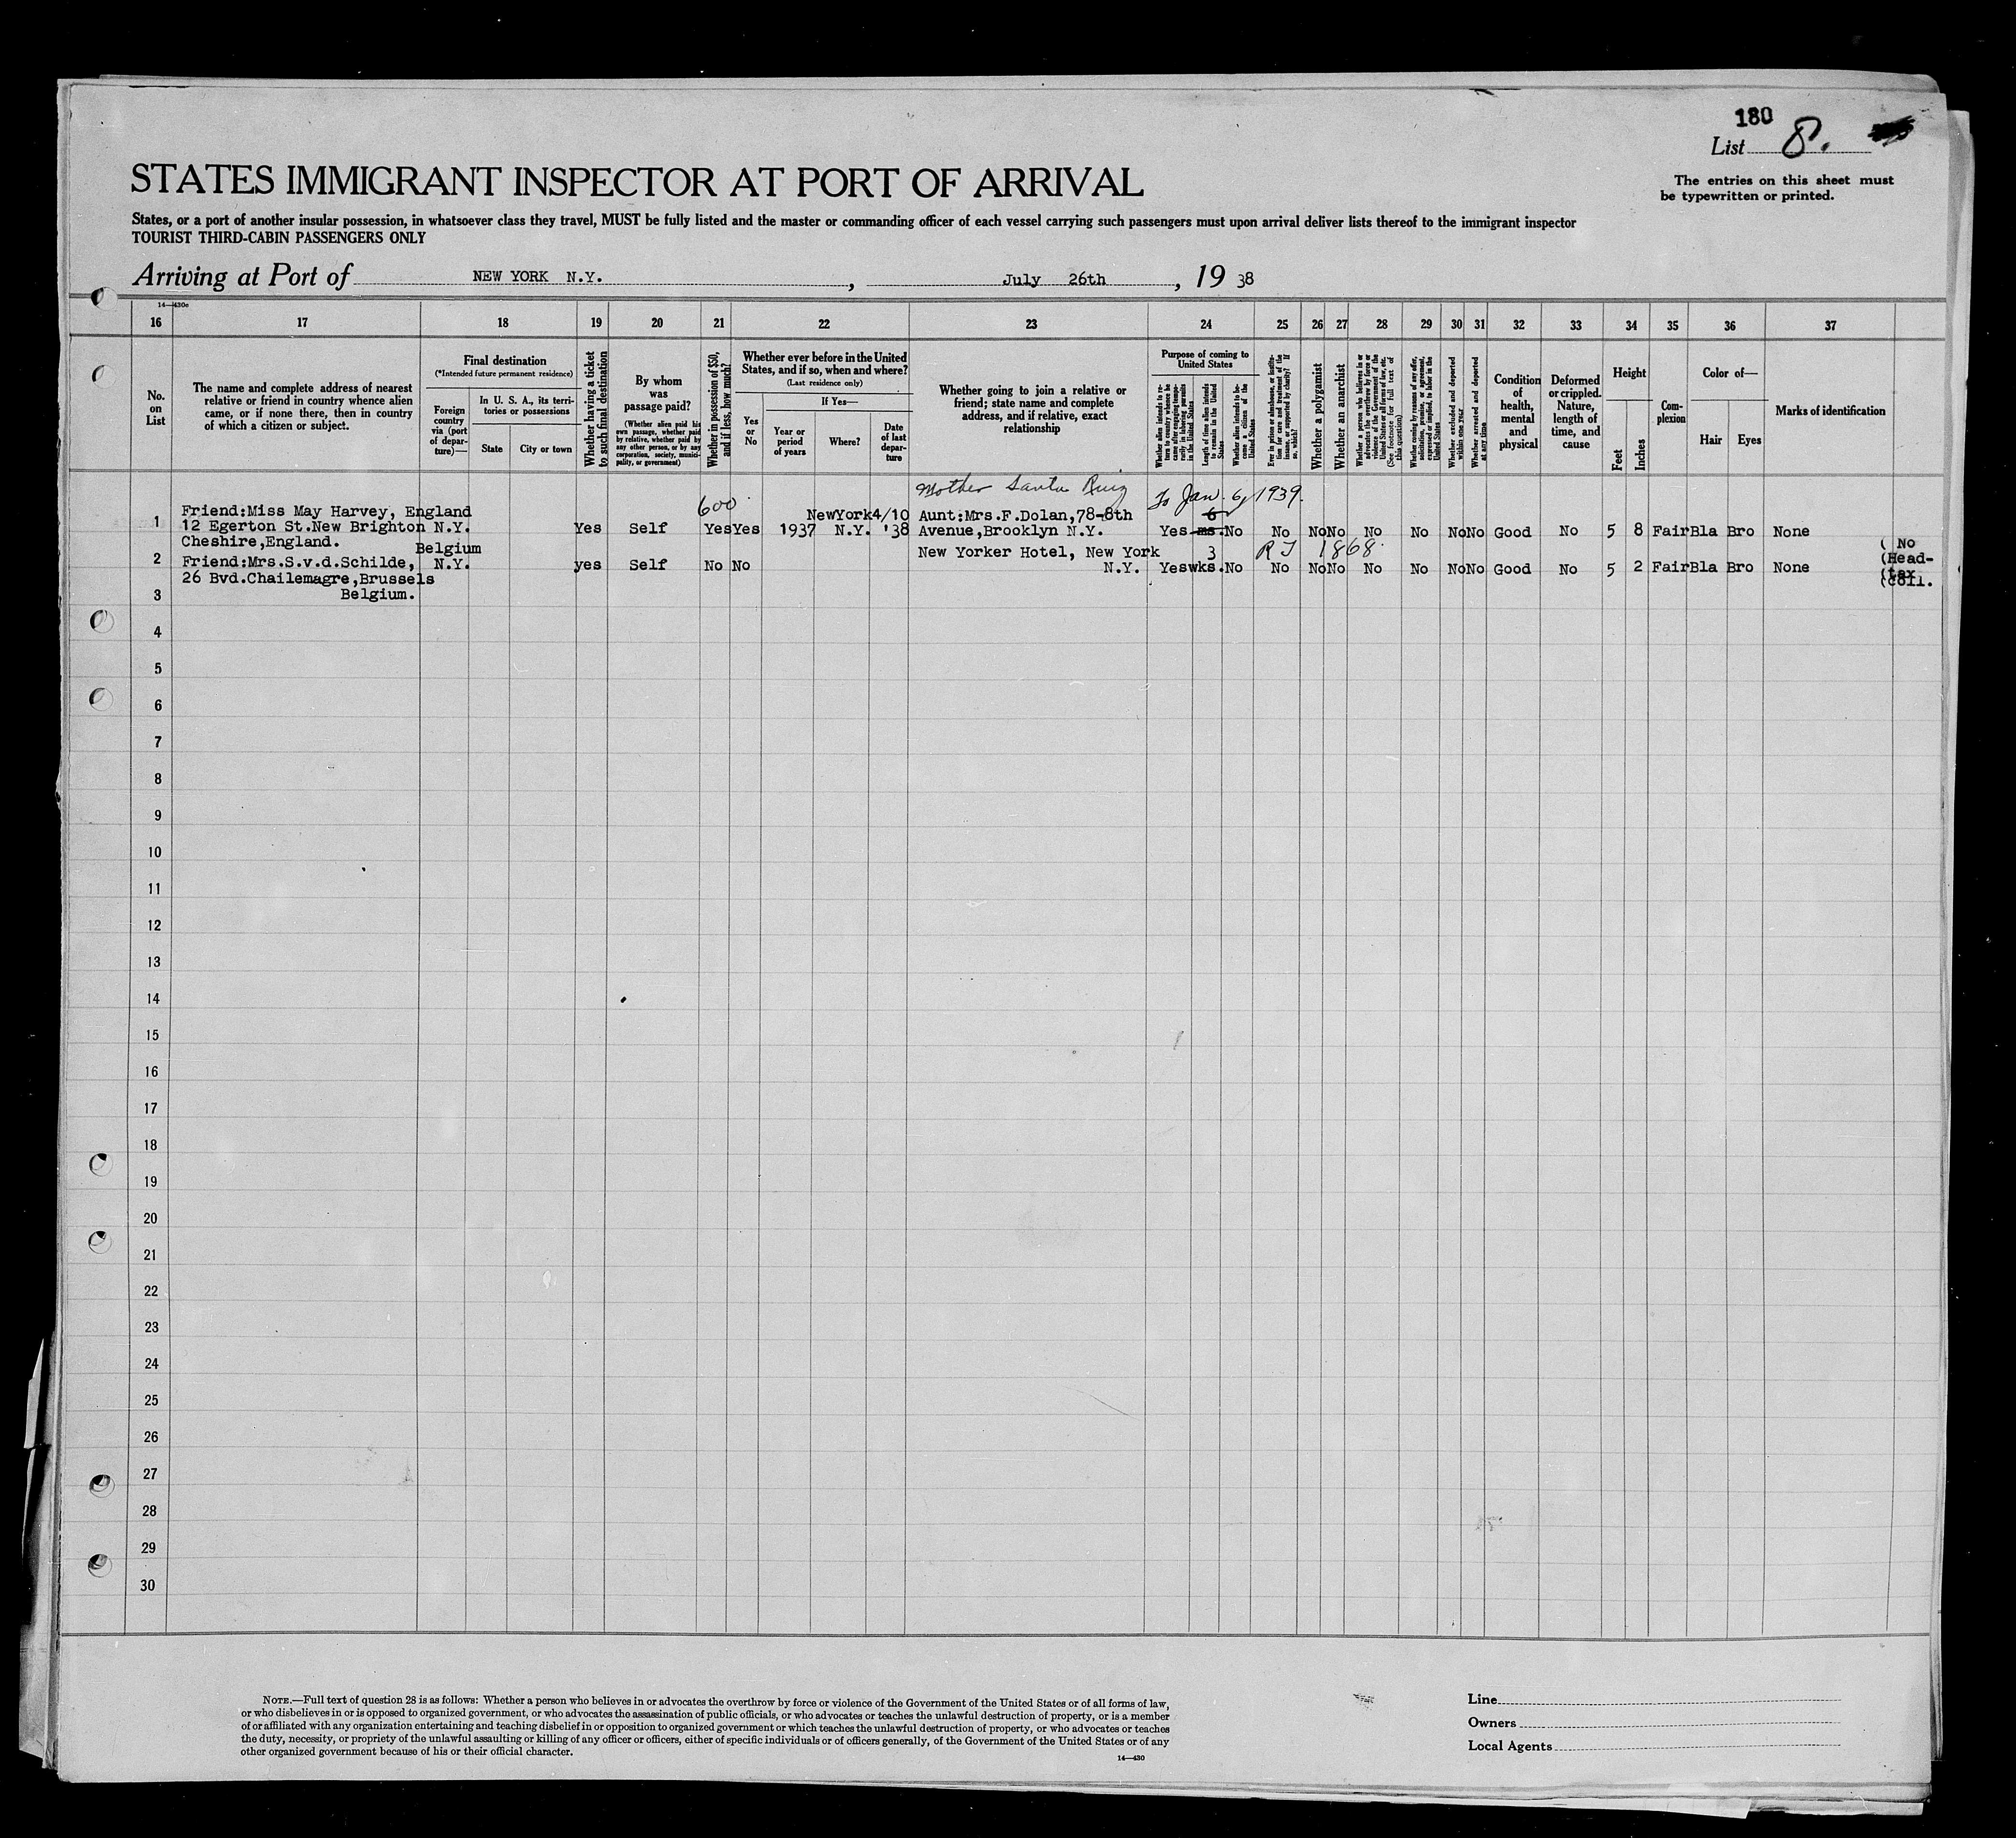 180
List 8.
The entries on this sheet must
be typewritten or printed.
STATES IMMIGRANT INSPECTOR AT PORT OF ARRIVAL
States, or a port of another insular possession, in whatsoever class they travel, MUST be fully listed and the master or commanding officer of each vessel carrying such passengers must upon arrival deliver lists thereof to the immigrant inspector
TOURIST THIRD-CABIN PASSENGERS ONLY
Arriving at Port of NEW YORK N.Y. , July 26th , 19 38
14—430c
16 17 18 19 20 21 22 23 24 25 26 27 28 29 30 31 32 33 34 35 36 37
No.
on
List
The name and complete address of nearest
relative or friend in country whence alien
came, or if none there, then in country
of which a citizen or subject.
Final destination
(*Intended future permanent residence)
Foreign
country
via (port
of depar-
ture)—
In U. S. A., its terri-
tories or possessions
State
City or town
Whether having a ticket
to such final destination
By whom
was
passage paid?
(Whether alien paid his
own passage, whether paid
by relative, whether paid by
any other person, or by any
corporation, society, munici-
pality, or government)
Whether in possession of $50,
and if less, how much?
Whether ever before in the United
States, and if so, when and where?
(Last residence only)
Yes
or
No
If Yes—
Year or
period
of years
Where?
Date
of last
depar-
ture
Whether going to join a relative or
friend; state name and complete
address, and if relative, exact
relationship
Purpose of coming to
United States
Whether alien intends to re-
turn to country whence he
came after engaging tempo-
rarily in laboring pursuits
in the United States
Length of time alien intends
to remain in the United
States
Whether alien intends to be-
come a citizen of the
United States
Ever in prison or almshouse, or institu-
tion for care and treatment of the
insane, or supported by charity? If
so, which?
Whether a polygamist
Whether an anarchist
Whether a person who believes in or
advocates the overthrow by force or
violence of the Government of the
United States or all forms of law, etc.
(See footnote for full text of
this question)
Whether coming by reason of any offer,
solicitation, promise, or agreement,
expressed or implied, to labor in the
United States
Whether excluded and deported
within one year
Whether arrested and deported
at any time
Condition
of
health,
mental
and
physical
Deformed
or crippled.
Nature,
length of
time, and
cause
Height
Feet
Inches
Com-
plexion
Color of—
Hair
Eyes
Marks of identification
Mother Santa Ruiz
To Jan. 6, 1939.
600
Friend:Miss May Harvey, England NewYork4/10 Aunt:Mrs.F.Dolan,78-8th 6
1 12 Egerton St.New Brighton N.Y. Yes Self Yes Yes 1937 N.Y. '38 Avenue,Brooklyn N.Y. Yes ms. No No No No No No No No Good No 5 8 Fair Bla Bro None
Cheshire,England.
Belgium New Yorker Hotel, New York 3 R J 1868. ( No
2 Friend:Mrs.S.v.d.Schilde, N.Y. yes Self No No N.Y. Yes wks. No No No No No No No No Good No 5 2 Fair Bla Bro None (Head-
26 Bvd.Chailemagre,Brussels (tax
3 Belgium. (coll.
4
5
6
7
8
9
10
11
12
13
14
15
16
17
18
19
20
21
22
23
24
25
26
27
28
29
30
NOTE.—Full text of question 28 is as follows: Whether a person who believes in or advocates the overthrow by force or violence of the Government of the United States or of all forms of law,
or who disbelieves in or is opposed to organized government, or who advocates the assassination of public officials, or who advocates or teaches the unlawful destruction of property, or is a member
of or affiliated with any organization entertaining and teaching disbelief in or opposition to organized government or which teaches the unlawful destruction of property, or who advocates or teaches
the duty, necessity, or propriety of the unlawful assaulting or killing of any officer or officers, either of specific individuals or of officers generally, of the Government of the United States or of any
other organized government because of his or their official character.
14—430
Line
Owners
Local Agents